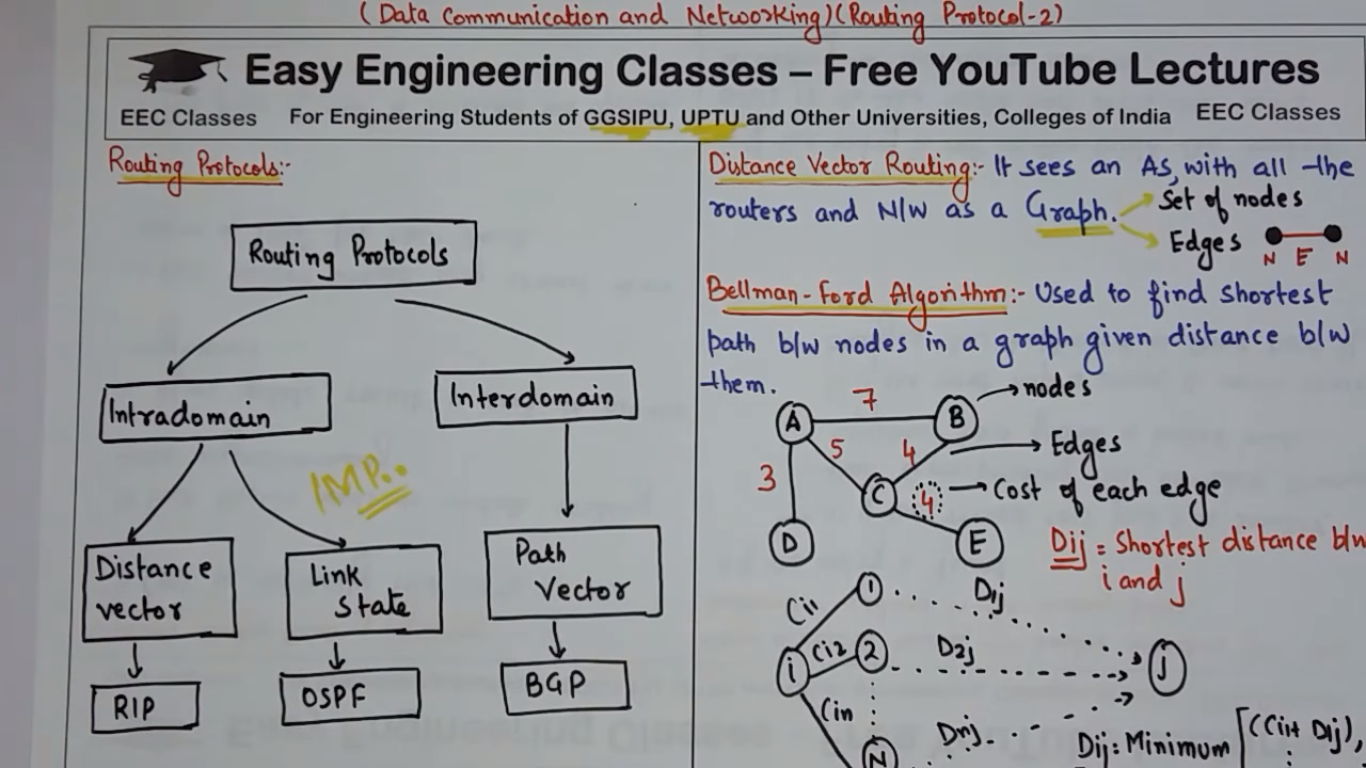 (Data Communication and Networking)(Routing Protocol-2)
Easy Engineering Classes – Free YouTube Lectures
EEC Classes For Engineering Students of GGSIPU, UPTU and Other Universities, Colleges of India EEC Classes
Routing Protocols:-
Routing Protocols
Intradomain
Interdomain
IMP.
Distance
vector
Link
State
Path
Vector
RIP
OSPF
BGP
Distance Vector Routing:- It sees an AS, with all the
routers and N/W as a Graph.
Set of nodes
Edges
N E N
Bellman-Ford Algorithm:- Used to find shortest
path b/w nodes in a graph given distance b/w
them.
A 7 B → nodes
5 4 → Edges
3
C 4 → Cost of each edge
D E
Dij = Shortest distance b/w
i and j
Ci1 1 Dij
i Ci2 2 D2j j
Cin
N Dnj
Dij = Minimum [(Ci1+ Dij),